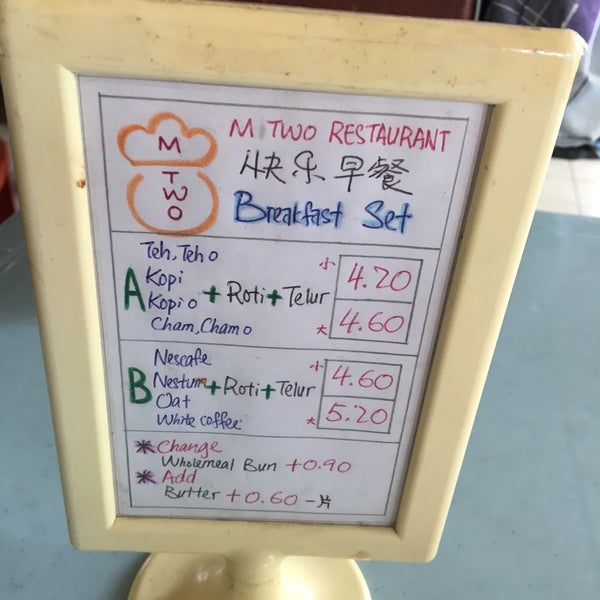 M
TWO
M TWO RESTAURANT
快乐早餐
Breakfast Set
A
Teh, Teh o
Kopi
Kopi o
Cham, Cham o
+ Roti + Telur
小 4.20
大 4.60
B
Nescafe
Nestum
Oat
White coffee
+ Roti + Telur
小 4.60
大 5.20
* Change
Wholemeal Bun +0.90
* Add
Butter +0.60 一片